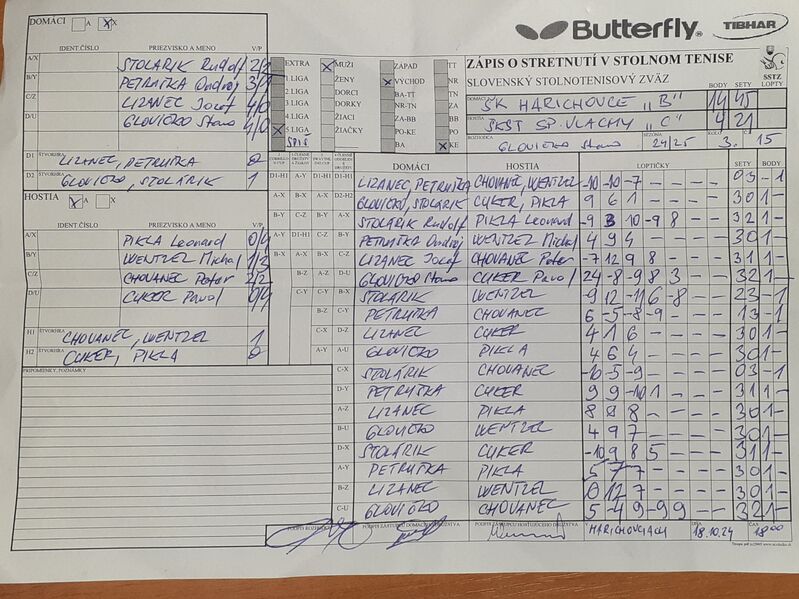 DOMÁCI A X
Butterfly TIBHAR
IDENT.ČÍSLO PRIEZVISKO A MENO V/P
A/X STOLÁRIK Rudolf 2/2
B/Y PETRUŤKA Ondrej 3/1
C/Z LIZANEC Jozef 4/0
D/U GLOVIČKO Stano 4/0
D1 ŠTVORHRA LIZANEC, PETRUŤKA 0
D2 ŠTVORHRA GLOVIČKO, STOLÁRIK 1
HOSTIA A X
IDENT.ČÍSLO PRIEZVISKO A MENO V/P
A/X PIKLA Leonard 0/4
B/Y WENTZEL Michal 1/3
C/Z CHOVANEC Peter 2/2
D/U CUKER Pavol 0/4
H1 ŠTVORHRA CHOVANEC, WENTZEL 1
H2 ŠTVORHRA CUKER, PIKLA 0
PRIPOMIENKY, POZNÁMKY
EXTRA MUŽI ZÁPAD TT
1.LIGA ŽENY VÝCHOD NR
2.LIGA DORCI BA-TT TN
3.LIGA DORKY NR-TN ZA
4.LIGA ŽIACI ZA-BB BB
5.LIGA ŽIAČKY PO-KE PO
SPIŠ BA KE
ZÁPIS O STRETNUTÍ V STOLNOM TENISE
SLOVENSKÝ STOLNOTENISOVÝ ZVÄZ
SSTZ
BODY SETY LOPTY
DOMÁCI ŠK HARICHOVCE "B" 14 45
HOSTIA ŠKST SP. VLACHY "C" 4 21
ROZHODCA GLOVIČKO Stano SEZÓNA 24/25 KOLO 3. 15
DOMÁCI HOSTIA LOPTIČKY SETY BODY
LIZANEC, PETRUŤKA CHOVANEC, WENTZEL -10 -10 -7 - - 0 3 - 1
GLOVIČKO, STOLÁRIK CUKER, PIKLA 9 6 1 - - 3 0 1 -
STOLÁRIK Rudolf PIKLA Leonard -9 3 10 -9 8 3 2 1 -
PETRUŤKA Ondrej WENTZEL Michal 4 9 4 - - 3 0 1 -
LIZANEC Jozef CHOVANEC Peter -7 12 9 8 - 3 1 1 -
GLOVIČKO Stano CUKER Pavol 24 -8 -9 8 3 3 2 1 -
STOLÁRIK WENTZEL -9 12 -11 6 -8 2 3 - 1
PETRUŤKA CHOVANEC 6 -5 -8 -9 - 1 3 - 1
LIZANEC CUKER 4 1 6 - - 3 0 1 -
GLOVIČKO PIKLA 4 6 4 - - 3 0 1 -
STOLÁRIK CHOVANEC -6 -5 -9 - - 0 3 - 1
PETRUŤKA CUKER 9 9 -10 1 - 3 1 1 -
LIZANEC PIKLA 8 8 8 - - 3 0 1 -
GLOVIČKO WENTZEL 4 9 7 - - 3 0 1 -
STOLÁRIK CUKER -10 9 8 5 - 3 1 1 -
PETRUŤKA PIKLA 5 7 7 - - 3 0 1 -
LIZANEC WENTZEL 0 12 7 - - 3 0 1 -
GLOVIČKO CHOVANEC 5 -4 9 -9 9 3 2 1 -
PODPIS ROZHODCU PODPIS ZÁSTUPCU DOMÁCEHO DRUŽSTVA PODPIS ZÁSTUPCU HOSŤUJÚCEHO DRUŽSTVA V HARICHOVCIACH DŇA 18.10.24 18:00